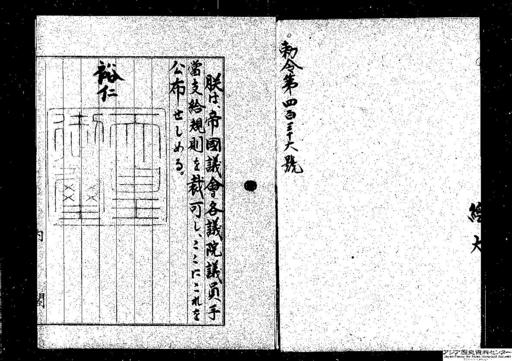 勅令第四百三十六號
朕は、帝國議會各議院議員手
當支給規則を裁可し、ここにこれを
公布せしめる。
裕仁
天皇
御璽
内
閣
アジア歴史資料センター